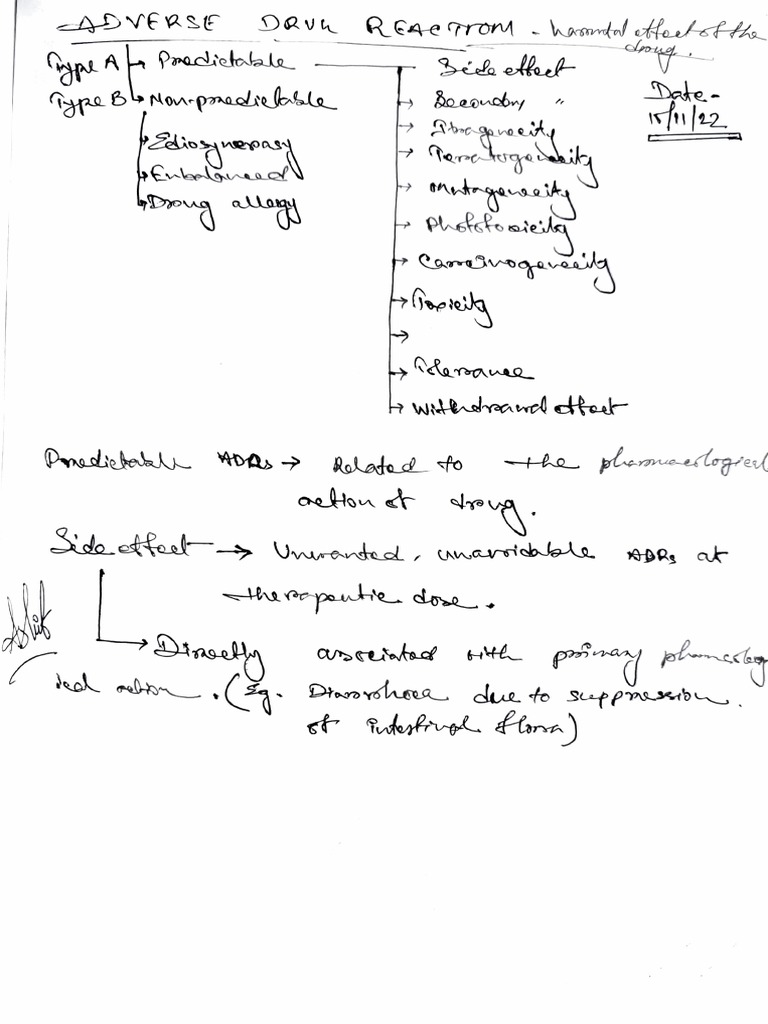 ADVERSE DRUG REACTION - harmful effect of the drug.
Type A → Predictable
Type B → Non-predictable
→ Ediosyncrasy
→ Enbalanced
→ Drug allergy
Side effect
→ Secondary "
→ Itrogenecity
→ Terratogenecity
→ Mutagenecity
→ Phototoxicity
→ Carcinogenecity
→ Toxicity
→
→ Tolerance
→ Withdrawal effect
Date -
15/11/22
Predictable ADRs → Related to the pharmacological
action of drug.
Side effect → Unwanted, unavoidable ADRs at
therapeutic dose.
→ Directly associated with primary pharmcolog
ical action. (Eg. Diarrhoea due to suppression
of intestinal flora)